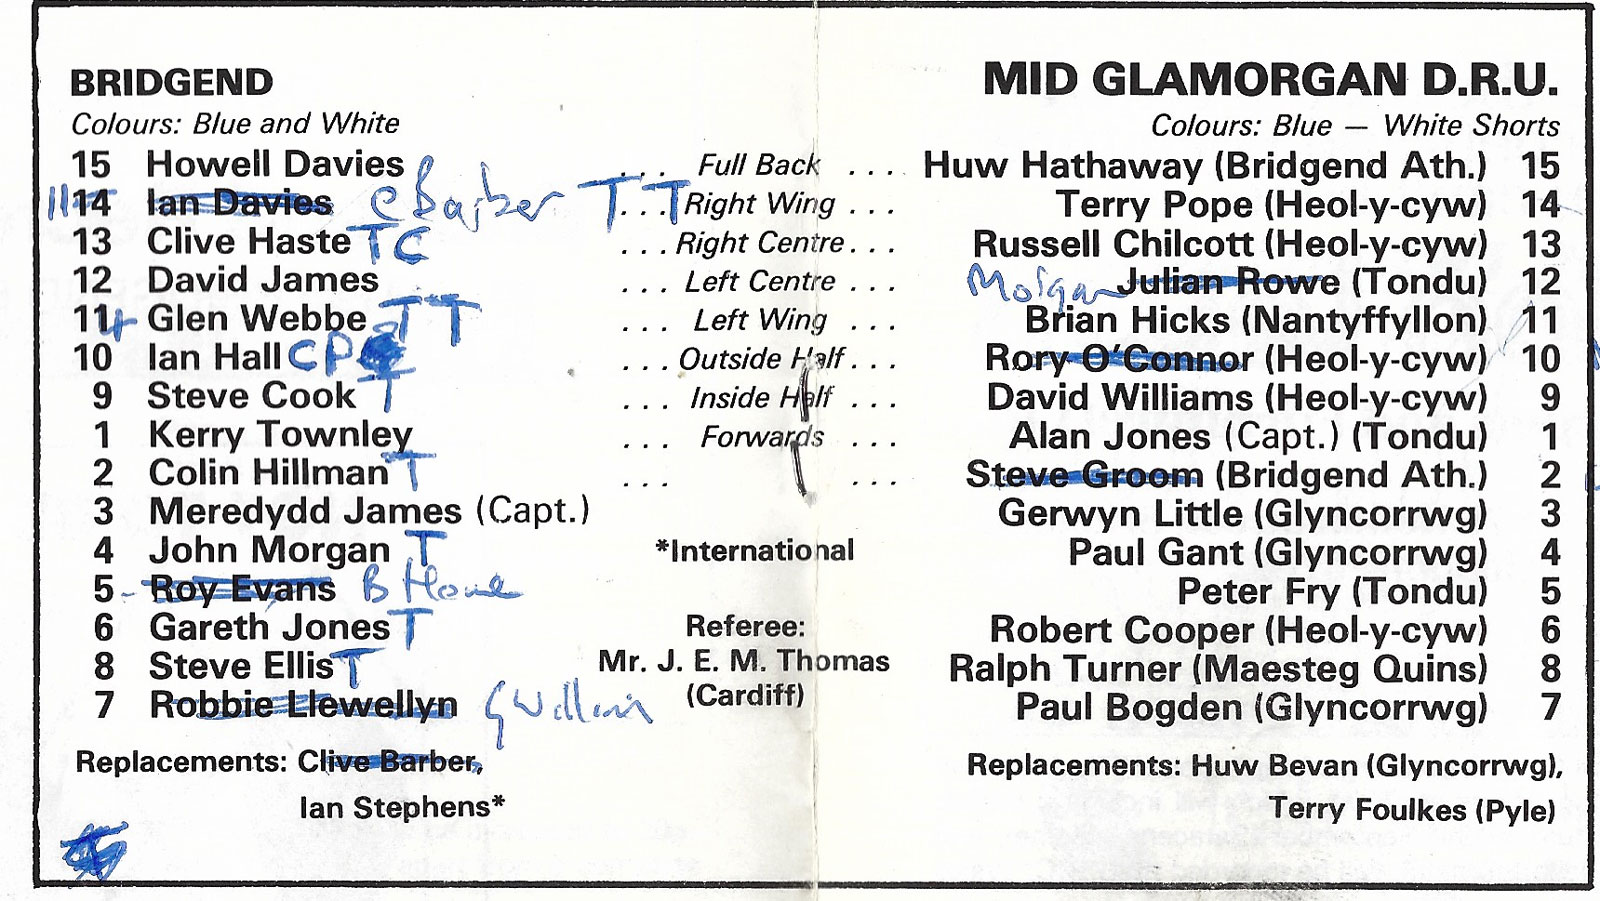 BRIDGEND
MID GLAMORGAN D.R.U.
Colours: Blue and White
Colours: Blue — White Shorts
15 Howell Davies ... Full Back .... Huw Hathaway (Bridgend Ath.) 15
11 14 Ian Davies C Barber T T ... Right Wing ... Terry Pope (Heol-y-cyw) 14
13 Clive Haste T C ... Right Centre ... Russell Chilcott (Heol-y-cyw) 13
12 David James ... Left Centre ... Morgan Julian Rowe (Tondu) 12
11 4 Glen Webbe T T ... Left Wing ... Brian Hicks (Nantyffyllon) 11
10 Ian Hall C P ... Outside Half ... Rory O'Connor (Heol-y-cyw) 10
9 Steve Cook T ... Inside Half ... David Williams (Heol-y-cyw) 9
1 Kerry Townley ... Forwards ... Alan Jones (Capt.) (Tondu) 1
2 Colin Hillman T ... ... Steve Groom (Bridgend Ath.) 2
3 Meredydd James (Capt.) Gerwyn Little (Glyncorrwg) 3
4 John Morgan T *International Paul Gant (Glyncorrwg) 4
5 Roy Evans B Howe Peter Fry (Tondu) 5
6 Gareth Jones T Referee: Robert Cooper (Heol-y-cyw) 6
8 Steve Ellis T Mr. J. E. M. Thomas Ralph Turner (Maesteg Quins) 8
7 Robbie Llewellyn G Williams (Cardiff) Paul Bogden (Glyncorrwg) 7
Replacements: Clive Barber, Replacements: Huw Bevan (Glyncorrwg),
Ian Stephens* Terry Foulkes (Pyle)